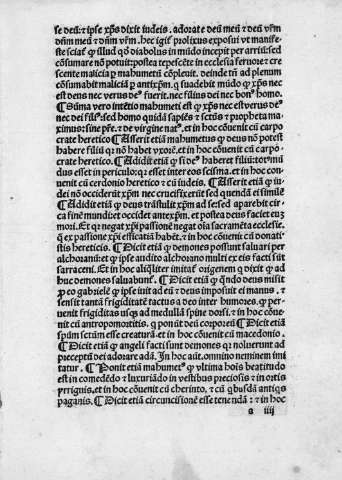 se deū: ⁊ ipse xp̄s dixit iudeis. adorate deū meū ⁊ deū vr̄m
dn̄m meū ⁊ dn̄m vr̄m. hoc igit̉ prolixus exposui vt manife
ste sciaſ ꝙ illud qd̄ diabolus in mūdo incepit per arriū: sed
cōsumare nō potuit: postea tepescēte in ecclesia feruore: ⁊ cre
scente malicia ꝑ mahumetū cōpleuit. deinde tn̄ ad plenum
cōsumabit malicia ꝑ antixp̄m. q̄ suadebit mūdo ꝙ xp̄s nec
est deus nec verus deiꝰ fuerit. nec filius dei nec bonꝰ homo.
¶ Sūma vero intētio mahumeti est ꝙ xp̄s nec est verus deꝰ
nec dei filꝰ: sed homo quidā sapiēs ⁊ sctūs ⁊ propheta ma
ximus: sine pr̄e. ⁊ de virgine natꝰ. et in hoc cōuenit cū carpo
crate heretico ¶ Asserit etiā mahumetus ꝙ deus nō potest
habere filiū: qz nō habet vxorē. et in hoc cōuenit cū carpo
crate heretico. ¶ Addidit etiā ꝙ si deꝰ haberet filiū: totꝰ mū
dus esset in periculo: qz esset inter eos scisma. et in hoc con
uenit cū cerdonio heretico ⁊ cū iudeis. ¶ Asserit etiā ꝙ iu
dei nō occiderūt xp̄m nec crucifixerūt sed quendā ei similē
¶ Addidit etiā ꝙ deus trāstulit xp̄m ad se: sed aparebit cir
ca finē mundi: et occidet antexp̄m. et postea deus faciet eūz
mori. Et qz negat xp̄i passionē negat oīa sacramēta ecclesie.
q̄ ex passione xp̄i efficatiā habēt. ⁊ in hoc cōuenit cū donati
stis hereticis. ¶ Dicit etiā ꝙ demones possunt saluari per
alchoranū: et ꝙ ipse audito alchorano multi ex eis facti sūt
sarraceni. Et in hoc aliq̄liter imitat̉ origenem q̄ dixit ꝙ ad
huc demones saluabunt̉. ¶ Dicit etiā ꝙ qn̄do deus misit
ꝑ eo gabrielē ꝙ ipse iuit ad eū ⁊ deus imposuit ei manus. ⁊
sensit tantā frigiditatē tactus a deo inter humeros. ꝙ per-
uenit frigiditas usqz ad medullā spine dorsi. ⁊ in hoc cōue
nit cū antropomoritis. q̄ ponūt deū corporeū ¶ Dicit etiā
spūm sctūm esse creaturā. et in hoc cōuenit cū macedonio
¶ Dicit etiā ꝙ angeli facti sunt demones qz noluerunt ad
preceptū dei adorare adā. In hoc aūt. omnino neminem imi
tatur. ¶ Ponit etiā mahumetꝰ ꝙ vltima hoīs beatitudo
est in comedēdo ⁊ luxuriādo in vestibus preciosis ⁊ in ortis
yrriguis. et in hoc cōuenit cū cherinto. ⁊ cū qbusdā antiqs
paganis. ¶ Dicit etiā circuncisionē esse tenendā: ⁊ in hoc
a iiij